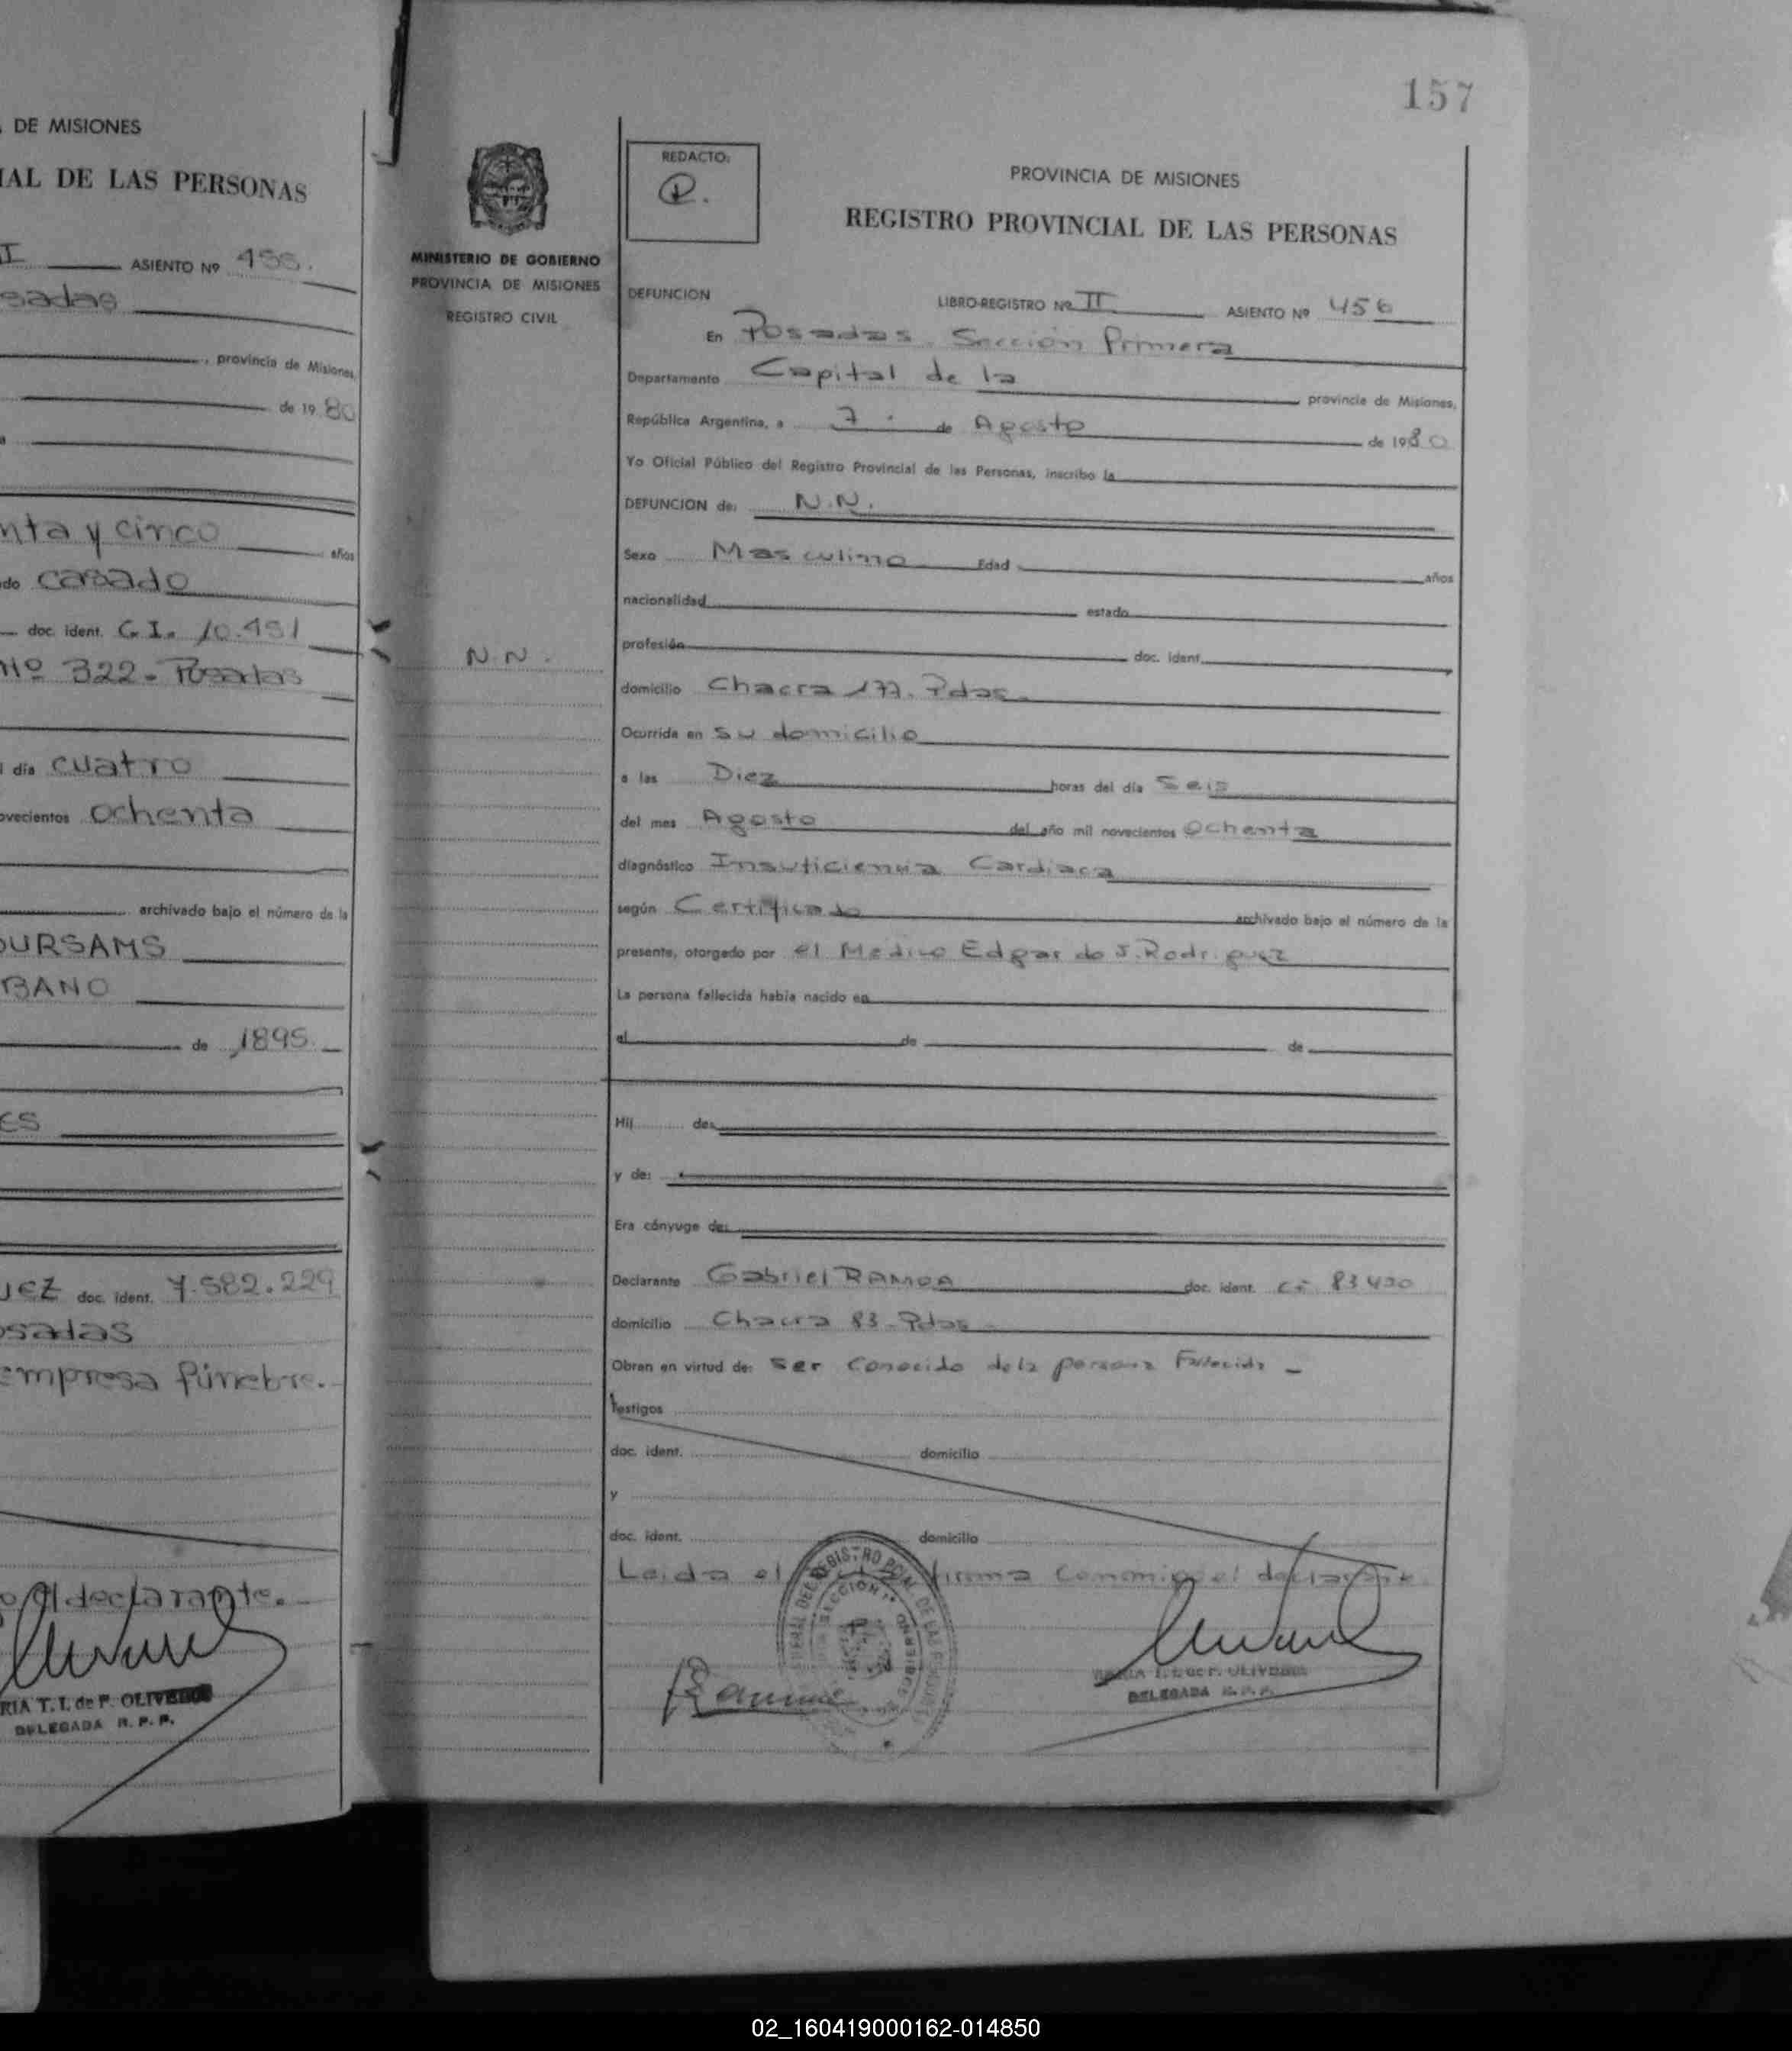 DE MISIONES
IAL DE LAS PERSONAS
I ASIENTO Nº 455.
sadas
, provincia de Misiones,
de 19 80
a
nta y cinco años
do casado
doc. ident. C.I. 10.451
Nº 322 - Posadas
l día cuatro
ovecientos ochenta
archivado bajo el número de la
OURSAMS
BANO
de 1895.
ES
UEZ doc. ident. 7.582.229
osadas
empresa fúnebre.
el declarante.
RIA T. I. de P. OLIVEIRA
DELEGADA R. P. P.
157
MINISTERIO DE GOBIERNO
PROVINCIA DE MISIONES
REGISTRO CIVIL
N.N.
REDACTO:
PROVINCIA DE MISIONES
REGISTRO PROVINCIAL DE LAS PERSONAS
DEFUNCION LIBRO-REGISTRO Nº II ASIENTO Nº 456
En Posadas. Sección Primera
Departamento Capital de la provincia de Misiones,
República Argentina, a 7 de Agosto de 1980
Yo Oficial Público del Registro Provincial de las Personas, inscribo la
DEFUNCION de: N.N.
Sexo Masculino Edad años
nacionalidad estado
profesión doc. ident.
domicilio Chacra 177. Pdas.
Ocurrida en su domicilio
a las Diez horas del día Seis
del mes Agosto del año mil novecientos Ochenta
diagnóstico Insuficiencia Cardiaca
según Certificado archivado bajo el número de la
presente, otorgado por el Medico Edgar do J. Rodriguez
La persona fallecida había nacido en
el de de
Hij de:
y de:
Era cónyuge de:
Declarante Gabriel RAMOA doc. ident. 83430
domicilio Chacra 83 - Pdas -
Obran en virtud de: ser Conocido de la persona Fallecida -
Testigos
doc. ident. domicilio
y
doc. ident. domicilio
Leida el firma conmigo el declarante.
MARIA T. I. de P. OLIVEIRA
DELEGADA R. P. P.
02_160419000162-014850